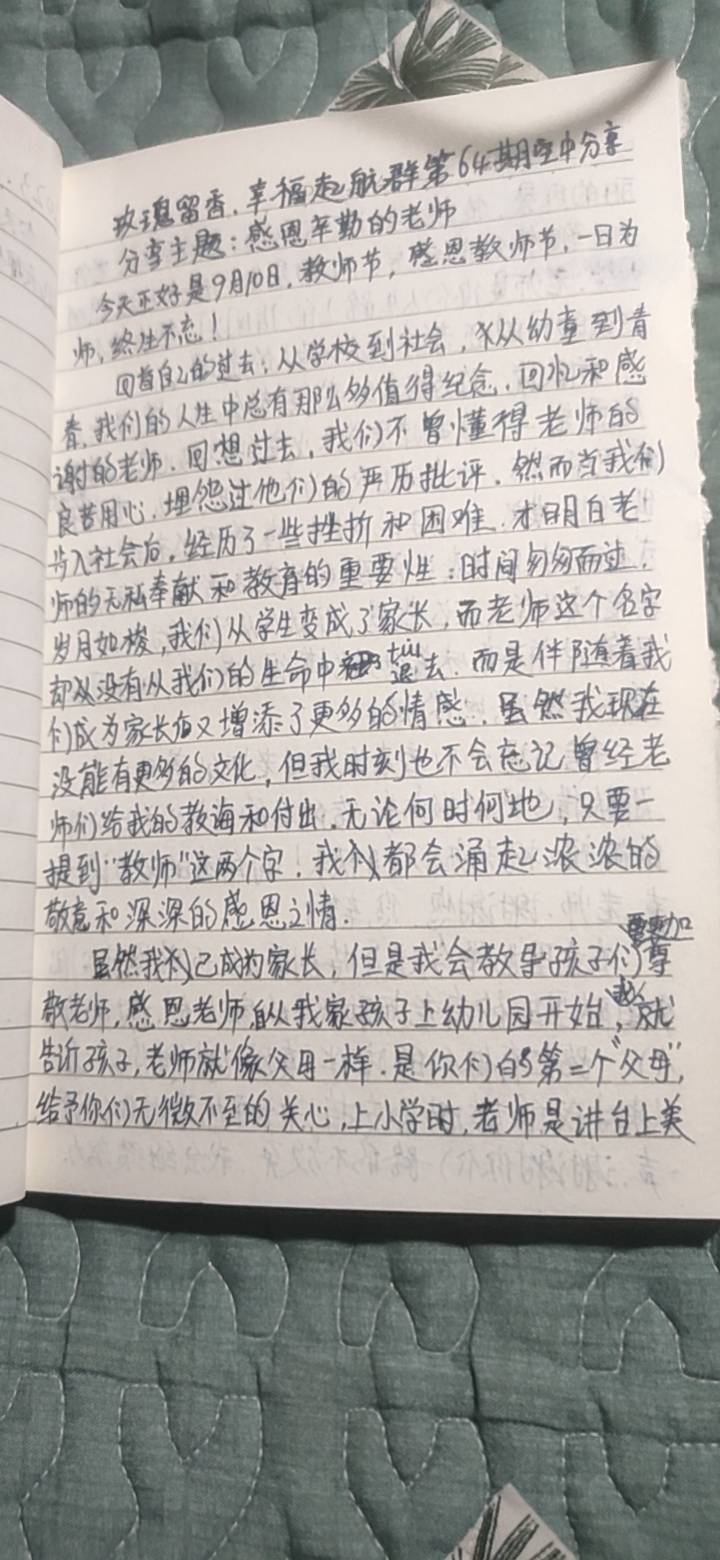 玫瑰留香.幸福起航群第64期空中分享
分享主题:感恩辛勤的老师
今天正好是9月10日,教师节,感恩教师节,一日为
师,终生不忘!
回首自己的过去,从学校到社会,从幼童到青
春,我们的人生中总有那么多值得纪念.回忆和感
谢的老师.回想过去,我们不曾懂得老师的
良苦用心.埋怨过他们的严历批评.然而当我们
步入社会后,经历了一些挫折和困难.才明白老
师的无私奉献和教育的重要性:时间匆匆而过.
岁月如梭,我们从学生变成了家长,而老师这个名字
却从没有从我们的生命中退去.而是伴随着我
们成为家长后又增添了更多的情感.虽然我现在
没能有更多的文化,但我时刻也不会忘记曾经老
师们给我的教海和付出.无论何时何地,只要一
提到"教师"这两个字.我们都会涌起浓浓的
敬意和深深的感恩之情.
虽然我们已成为家长,但是我会教导孩子们要更加尊
敬老师,感恩老师,从我家孩子上幼儿园开始,我就
告诉孩子,老师就像父母一样.是你们的第二个"父母",
给予你们无微不至的关心,上小学时,老师是讲台上美